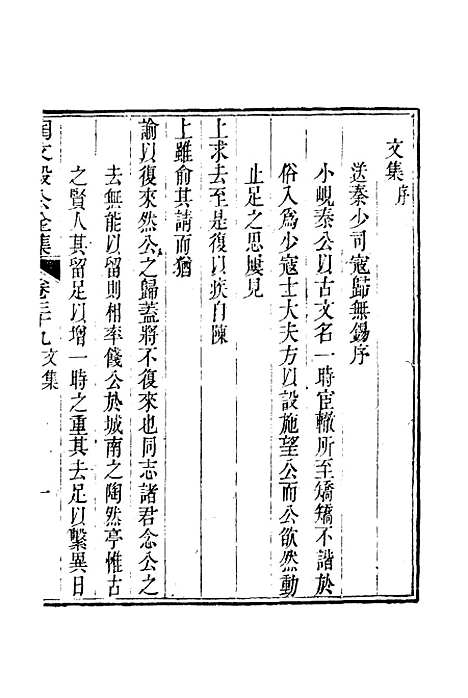 文集序
送秦少司寇歸無錫序
小峴秦公以古文名一時宦轍所至矯矯不諧於
俗入為少寇士大夫方以設施望公而公欲然動
止足之思屢見
上求去至是復以疾自陳
上雖俞其請而猶
諭以復來然公之歸蓋將不復來也同志諸君念公之
去無能以留則相率餞公於城南之陶然亭惟古
之賢人其留足以增一時之重其去足以繫異日
文毅公全集 卷三十九 文集 一